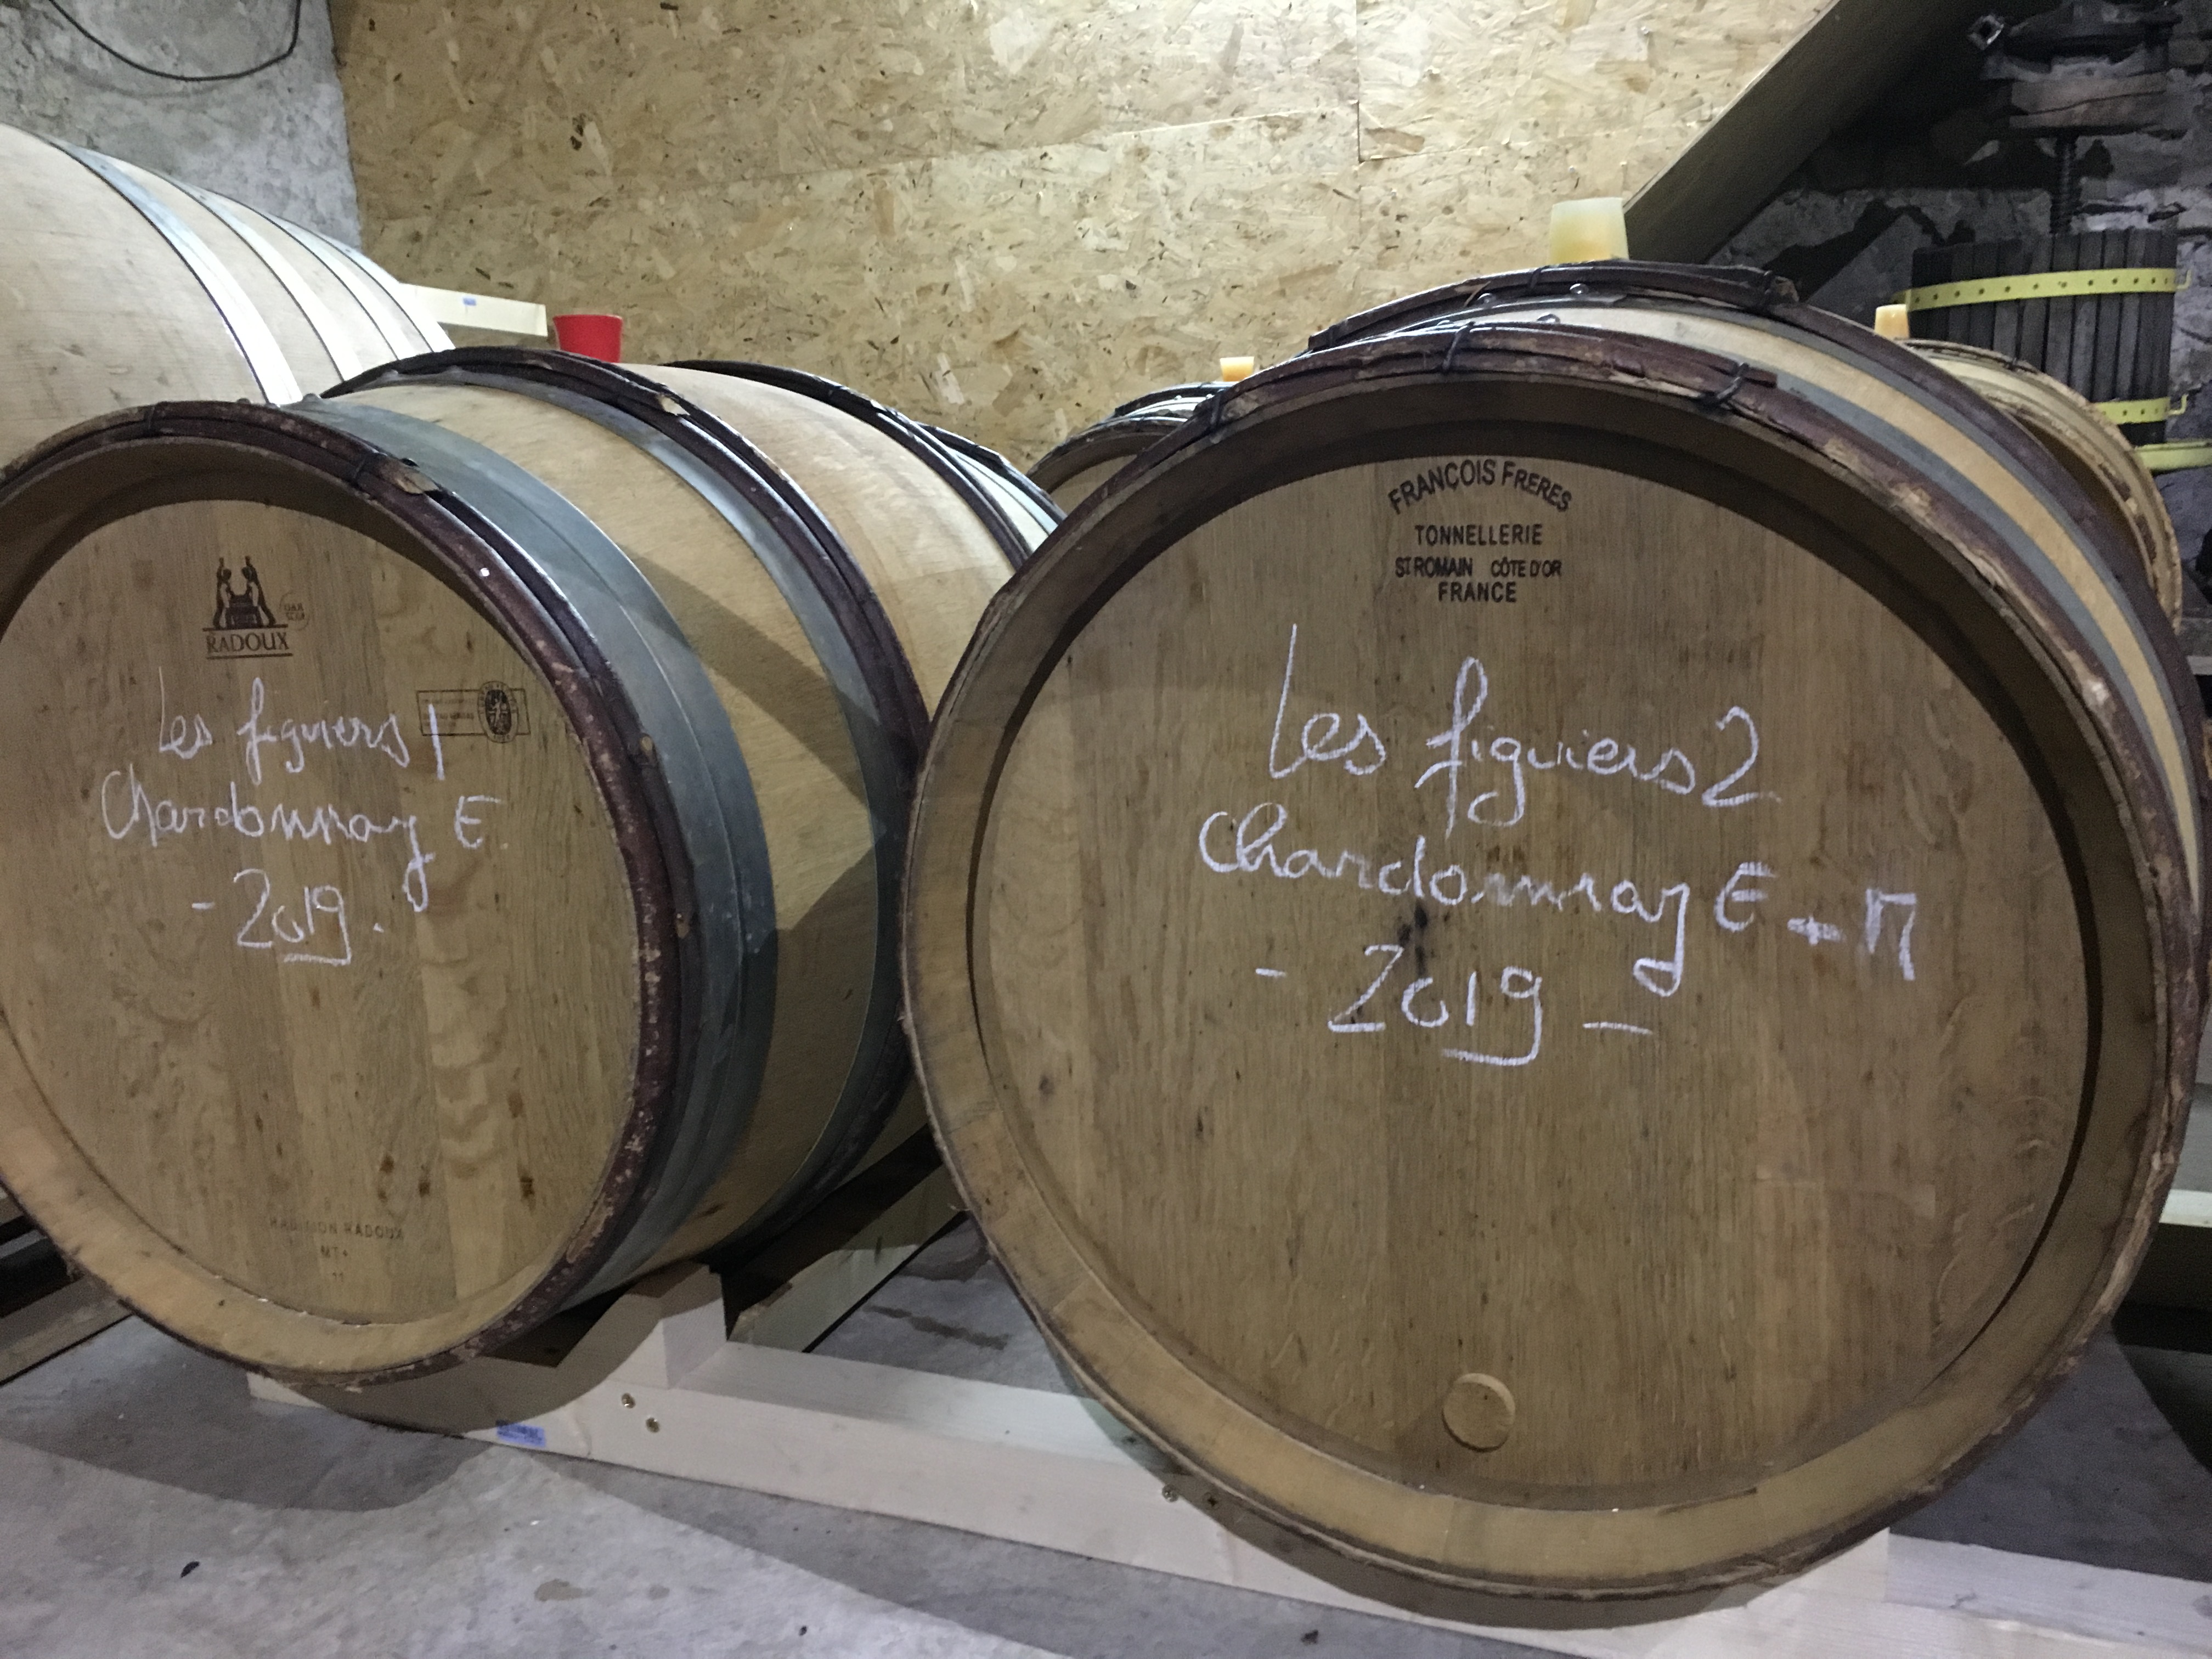 RADOUX
Les figuiers 1
Chardonnay E
- 2019 .
RADOUX
MT+
FRANCOIS FRERES
TONNELLERIE
ST ROMAIN CÔTE D'OR
FRANCE
Les figuiers 2
Chardonnay E - M
- 2019 -